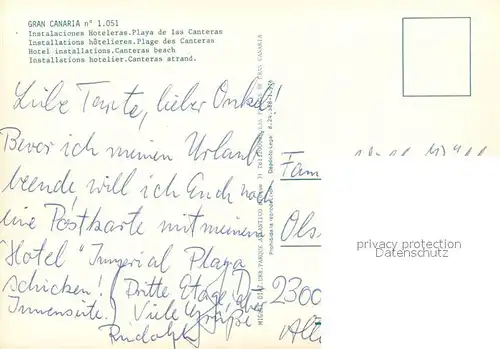 GRAN CANARIA nº 1.051
Instalaciones Hoteleras.Playa de las Canteras
Installations hôtelieres.Plage des Canteras
Hotel installations.Canteras beach
Installations hotelier.Canteras strand.
Liebe Tante, lieber Onkel!
Bevor ich meinen Urlaub
beende will ich Euch noch
eine Postkarte mit meinem
"Hotel" Immerial Playa
schicken! (Dritte Etage, aber
Innenseite.) Viele Grüße
Rudolph
Fam
Ols
2300
privacy protection
Datenschutz